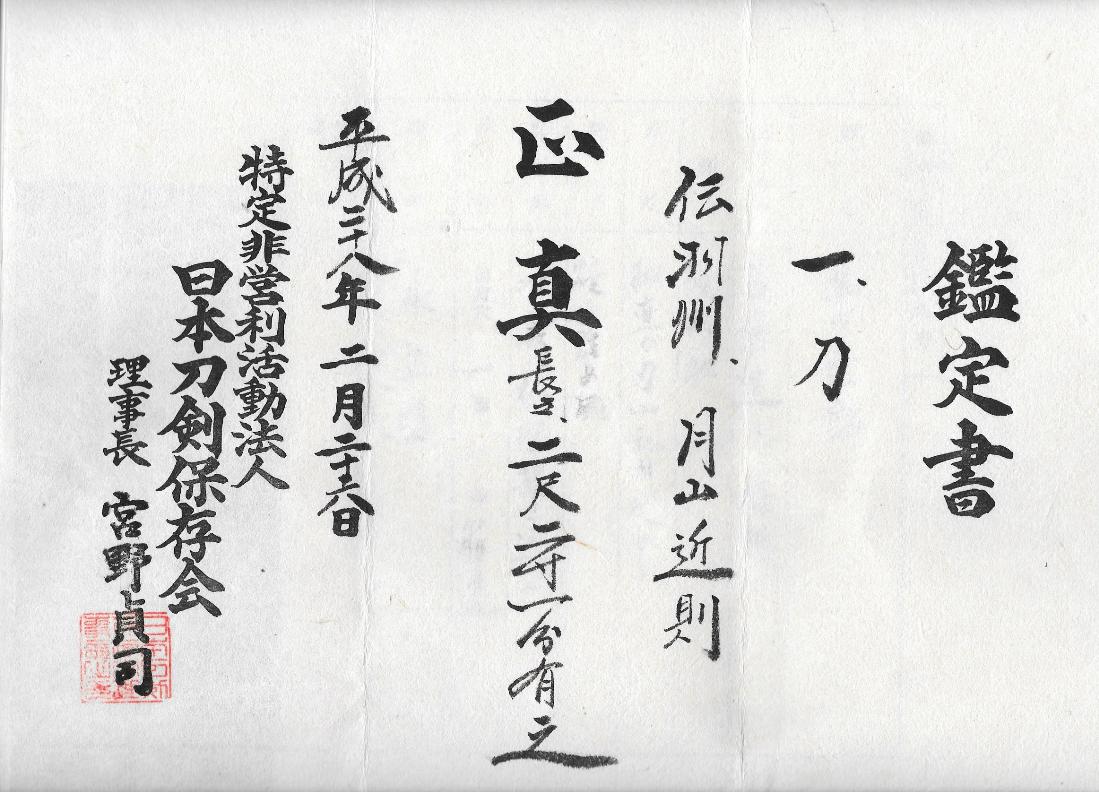 鑑定書
一、刀
伝羽州、月山近則
正真
長さ、二尺二寸一分有之
平成二十八年二月二十六日
特定非営利活動法人
日本刀剣保存会
理事長 宮野貞司